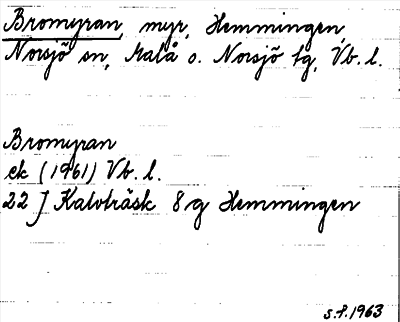 Bromyran, myr, Hemmingen,
Norsjö sn, Malå o. Norsjö tg, Vb. l.
Bromyran
ek (1961) Vb. l.
22 J Kalvträsk 8 g Hemmingen
s.f. 1963